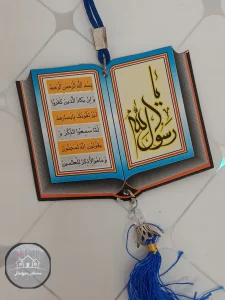 بسم الله الرحمن الرحيم
و إن يكاد الذين كفروا
ليزلقونك بأبصارهم
لما سمعوا الذكر و
يقولون إنه لمجنون
و ما هو إلا ذكر للعالمين
يا رسول الله